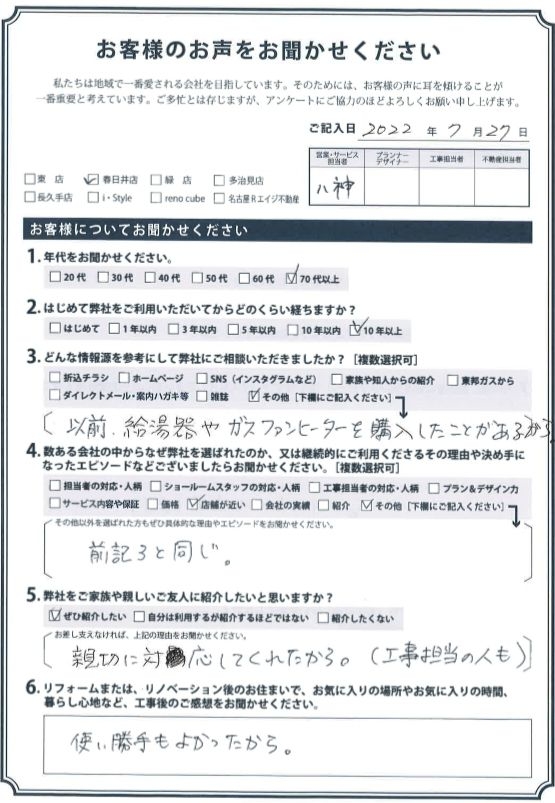 お客様のお声をお聞かせください
私たちは地域で一番愛される会社を目指しています。そのためには、お客様の声に耳を傾けることが
一番重要と考えています。ご多忙とは存じますが、アンケートにご協力のほどよろしくお願い申し上げます。
ご記入日 2022 年 7 月 27 日
営業・サービス担当者 プランナーデザイナー 工事担当者 不動産担当者
八神
□東 店 ☑春日井店 □緑 店 □多治見店
□長久手店 □i・Style □reno cube □名古屋Rエイジ不動産
お客様についてお聞かせください
1. 年代をお聞かせください。
□20代 □30代 □40代 □50代 □60代 ☑70代以上
2. はじめて弊社をご利用いただいてからどのくらい経ちますか？
□はじめて □1年以内 □3年以内 □5年以内 □10年以内 ☑10年以上
3. どんな情報源を参考にして弊社にご相談いただきましたか？［複数選択可］
□折込チラシ □ホームページ □SNS（インスタグラムなど） □家族や知人からの紹介 □東邦ガスから
□ダイレクトメール・案内ハガキ等 □雑誌 ☑その他［下欄にご記入ください］
以前、給湯器やガスファンヒーターを購入したことがあるから
4. 数ある会社の中からなぜ弊社を選ばれたのか、又は継続的にご利用くださるその理由や決め手に
なったエピソードなどございましたらお聞かせください。［複数選択可］
□担当者の対応・人柄 □ショールームスタッフの対応・人柄 □工事担当者の対応・人柄 □プラン＆デザイン力
□サービス内容や保証 □価格 ☑店舗が近い □会社の実績 □紹介 ☑その他［下欄にご記入ください］
その他以外を選ばれた方もぜひ具体的な理由やエピソードをお聞かせください。
前記3と同じ。
5. 弊社をご家族や親しいご友人に紹介したいと思いますか？
☑ぜひ紹介したい □自分は利用するが紹介するほどではない □紹介したくない
お差し支えなければ、上記の理由をお聞かせください。
親切に対応してくれたから。（工事担当の人も）
6. リフォームまたは、リノベーション後のお住まいで、お気に入りの場所やお気に入りの時間、
暮らし心地など、工事後のご感想をお聞かせください。
使い勝手もよかったから。